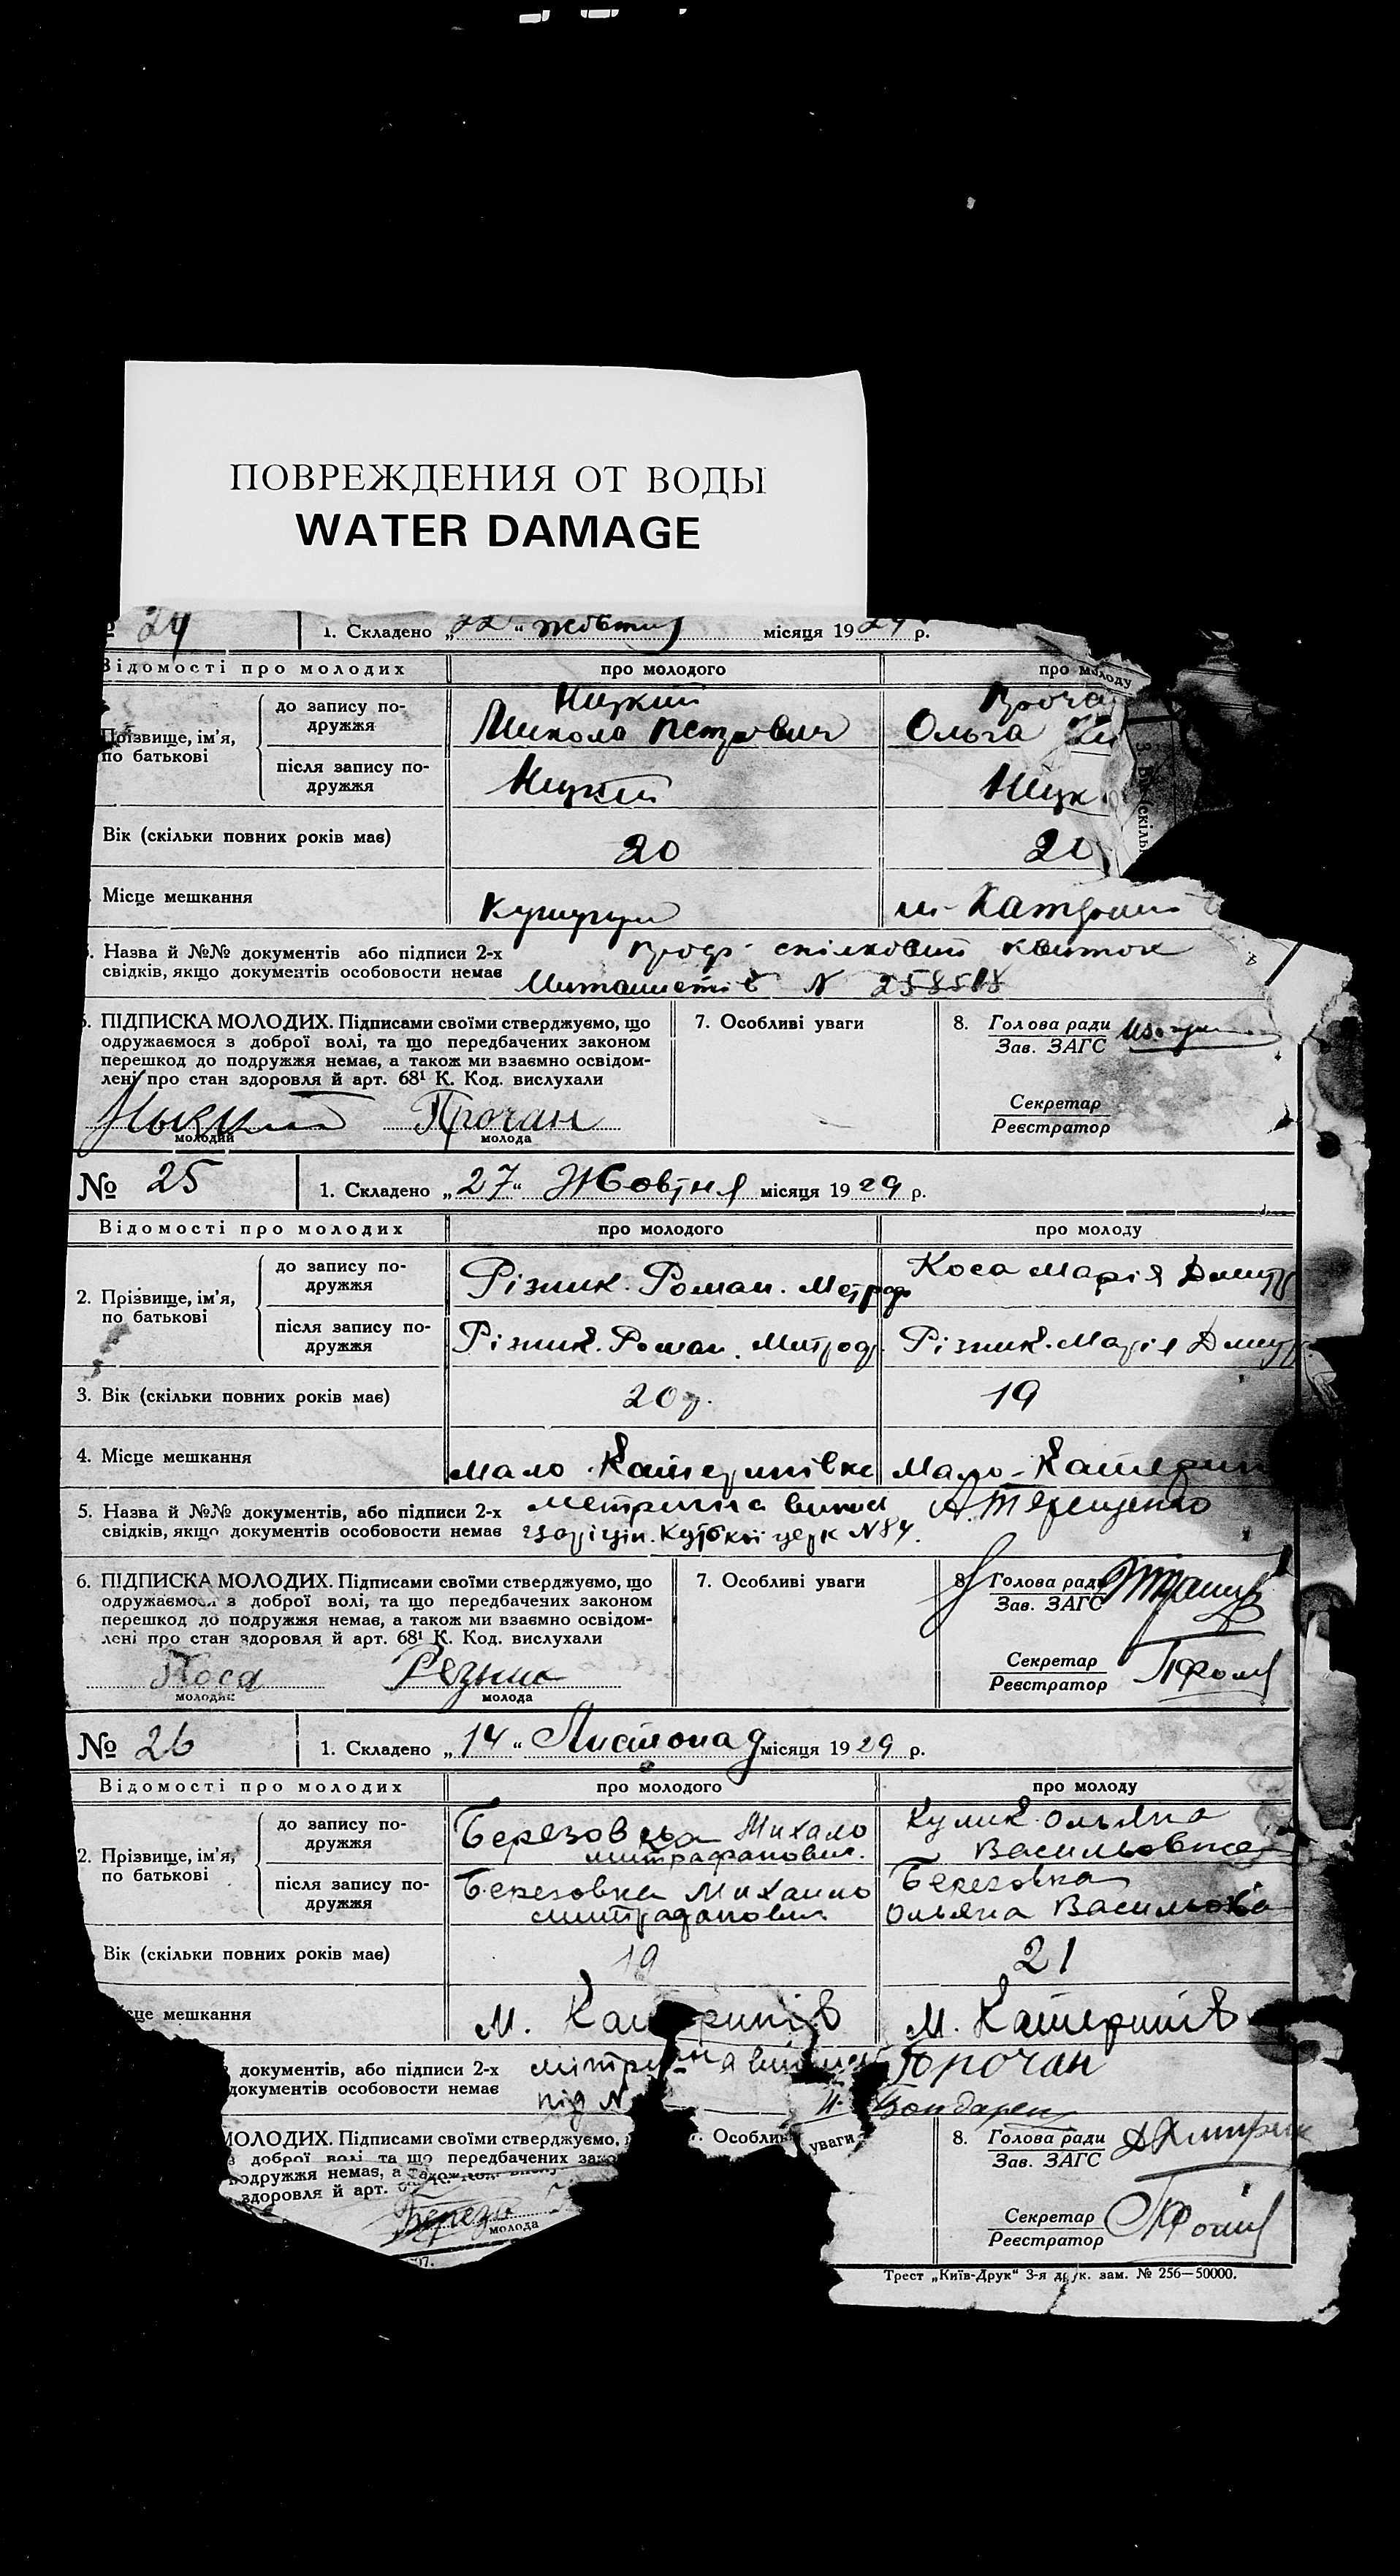 ПОВРЕЖДЕНИЯ ОТ ВОДЫ
WATER DAMAGE
24 1. Складено „22“ жовтня місяця 1929 р.
Відомості про молодих про молодого про молоду
до запису подружжя Ницкий Микола Петрович Проча Ольга
Прізвище, ім’я, по батькові
після запису подружжя Ницкий Ницк
Вік (скільки повних років має) 20 20
Місце мешкання Кушугум м-Катерин
Назва й №№ документів або підписи 2-х проф. спілковий квиток
свідків, якщо документів особовости немає N 258518
ПІДПИСКА МОЛОДИХ. Підписами своїми стверджуємо, що 7. Особливі уваги 8. Голова ради
одружаємося з доброї волі, та що передбачених законом Зав. ЗАГС
перешкод до подружжя немає, а також ми взаємно освідом-
лені про стан здоровля й арт. 68¹ К. Код. вислухали
Секретар
Прочан Реєстратор
молодий молода
№ 25 1. Складено „27“ Жовтня місяця 1929 р.
Відомості про молодих про молодого про молоду
до запису подружжя Різник. Роман. Митроф Коса Марія Дмит
2. Прізвище, ім’я, по батькові
після запису подружжя Різник. Роман. Митроф. Різник. Марія Дмит
3. Вік (скільки повних років має) 20 р. 19
4. Місце мешкання Мало. Катеринівка Мало-Катерин
5. Назва й №№ документів, або підписи 2-х метрична випис А. Терещенко
свідків, якщо документів особовости немає церк N 84.
6. ПІДПИСКА МОЛОДИХ. Підписами своїми стверджуємо, що 7. Особливі уваги 8. Голова ради
одружаємося з доброї волі, та що передбачених законом Зав. ЗАГС
перешкод до подружжя немає, а також ми взаємно освідом-
лені про стан здоровля й арт. 68¹ К. Код. вислухали
Секретар
Коса Резник Реєстратор
молодий молода
№ 26 1. Складено „14“ Листопад місяця 1929 р.
Відомості про молодих про молодого про молоду
до запису подружжя Березовка Михало Митрафанович. Кулик Ольяна Васильовна
2. Прізвище, ім’я, по батькові
після запису подружжя Березовка Михайло Митрафанович Березовка Ольяна Васильовна
Вік (скільки повних років має) 19 21
сце мешкання М. Катеринів М. Катеринів
документів, або підписи 2-х Прочан
документів особовости немає під N Бондарен
МОЛОДИХ. Підписами своїми стверджуємо, Особлив уваги 8. Голова ради
доброї волі, та що передбачених зако Зав. ЗАГС
подружжя немає, а також
здоровля й арт.
Секретар
Березо Реєстратор
молода
Трест „Київ-Друк“ 3-я друк. зам. № 256—50000.